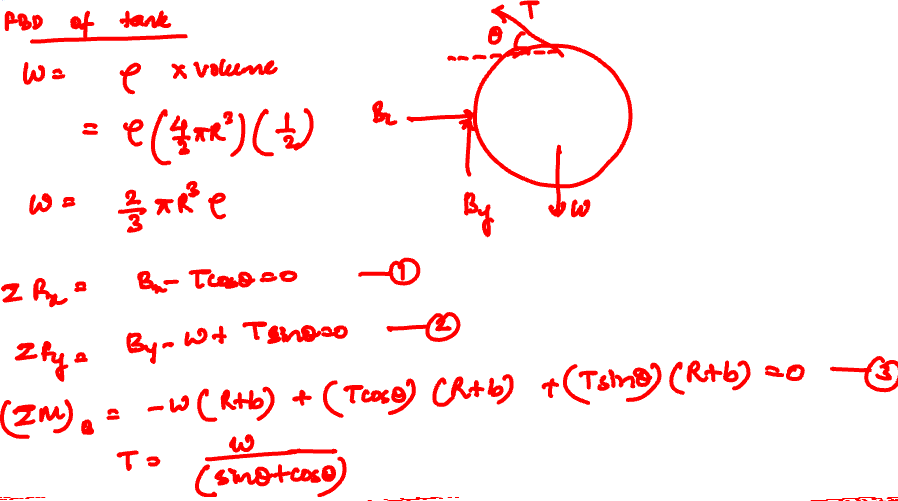 FBD of tank
W = ρ x volume
= ρ(4/3 πR³)(1/2)
W = 2/3 πR³ ρ
T
θ
Bx
By
W
ΣFx = Bx - Tcosθ = 0 —①
ΣFy = By - W + Tsinθ = 0 —②
(ΣM)B = -W(R+b) + (Tcosθ)(R+b) + (Tsinθ)(R+b) = 0 —③
T = W/(sinθ+cosθ)